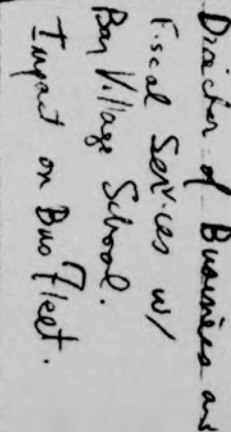 Director of Business and
Fiscal Services w/
Bay Village School.
Impact on Bus Fleet.